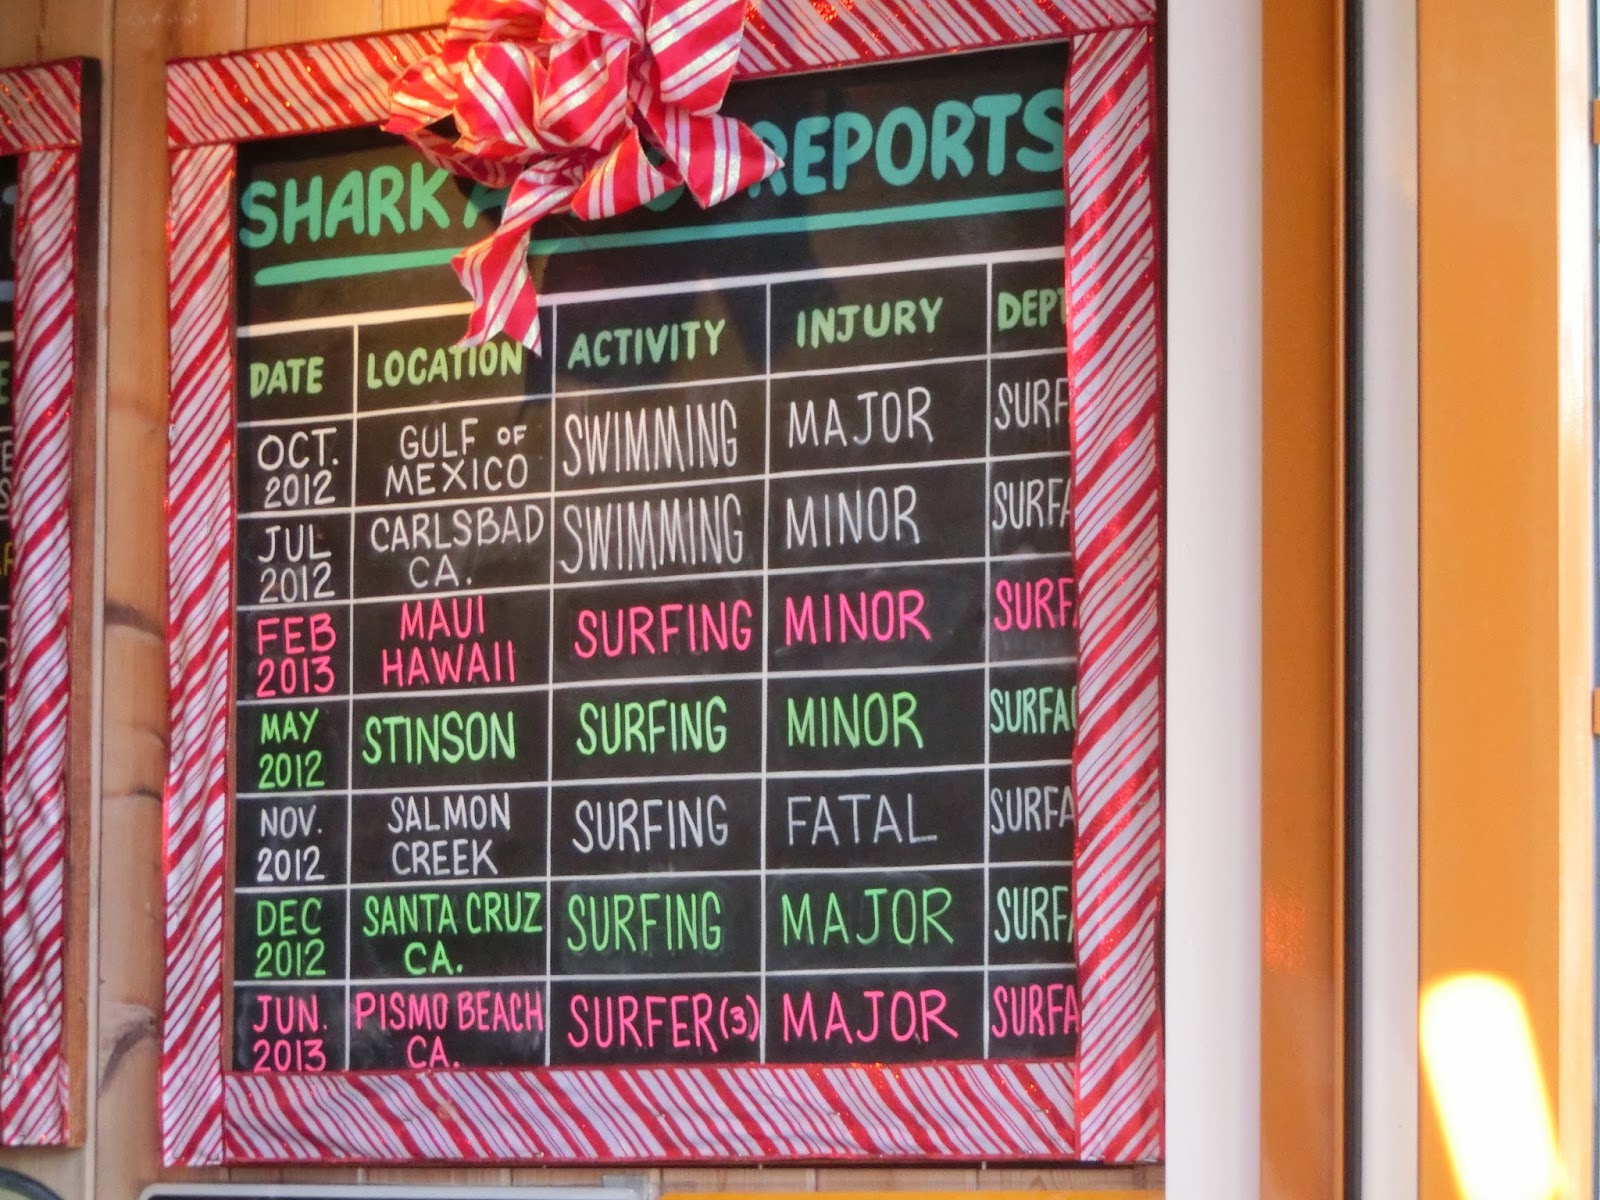 SHARK REPORTS
DATE LOCATION ACTIVITY INJURY DEPT
OCT. 2012 GULF OF MEXICO SWIMMING MAJOR SURF
JUL 2012 CARLSBAD CA. SWIMMING MINOR SURFA
FEB 2013 MAUI HAWAII SURFING MINOR SURFA
MAY 2012 STINSON SURFING MINOR SURFAC
NOV. 2012 SALMON CREEK SURFING FATAL SURFA
DEC 2012 SANTA CRUZ CA. SURFING MAJOR SURFA
JUN. 2013 PISMO BEACH CA. SURFER(3) MAJOR SURFA